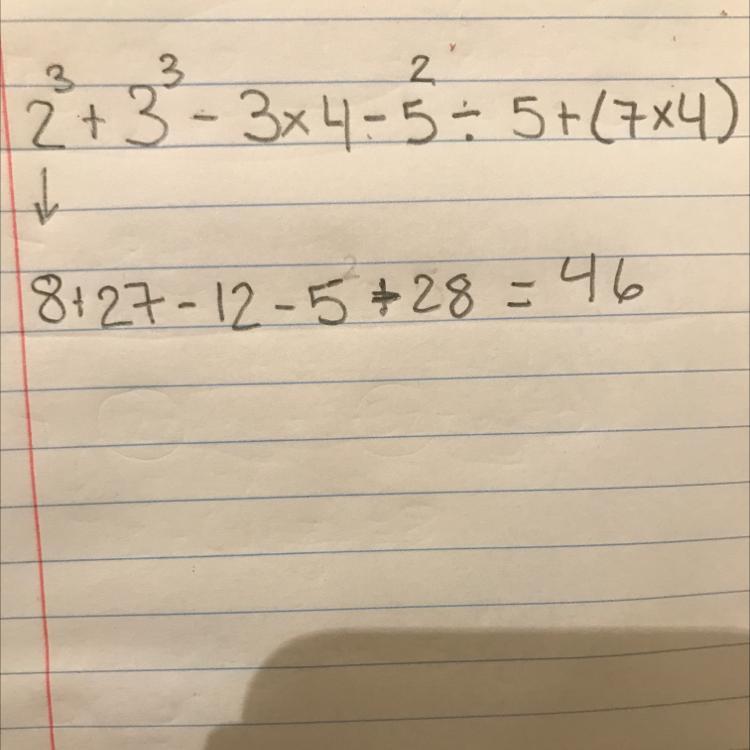 2³ + 3³ - 3×4 - 5² ÷ 5 + (7×4)
↓
8 + 27 - 12 - 5 + 28 = 46